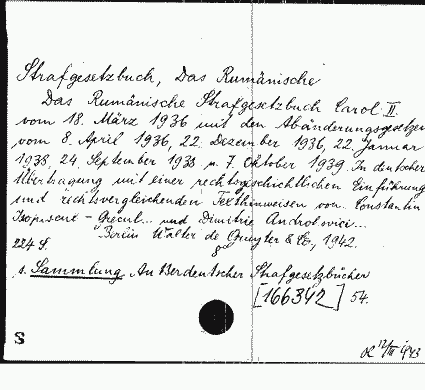 Strafgesetzbuch, Das Rumänische
Das Rumänische Strafgesetzbuch Carol II.
vom 18. März 1936 mit den Abänderungsgesetzen
vom 8. April 1936, 22. Dezember 1936, 22. Januar
1938, 24. September 1938 u. 7. Oktober 1939. In deutscher
Übertragung mit einer rechtsgeschichtlichen Einführung
und rechtsvergleichenden Texthinweisen von Constantin
Isopescul-Grecul... und Dimitrie Androhovici...
Berlin Walter de Gruyter & Co., 1942.
224 S. 8°
s. Sammlung Außerdeutscher Strafgesetzbücher
[166342] 54.
S
12/III 1943